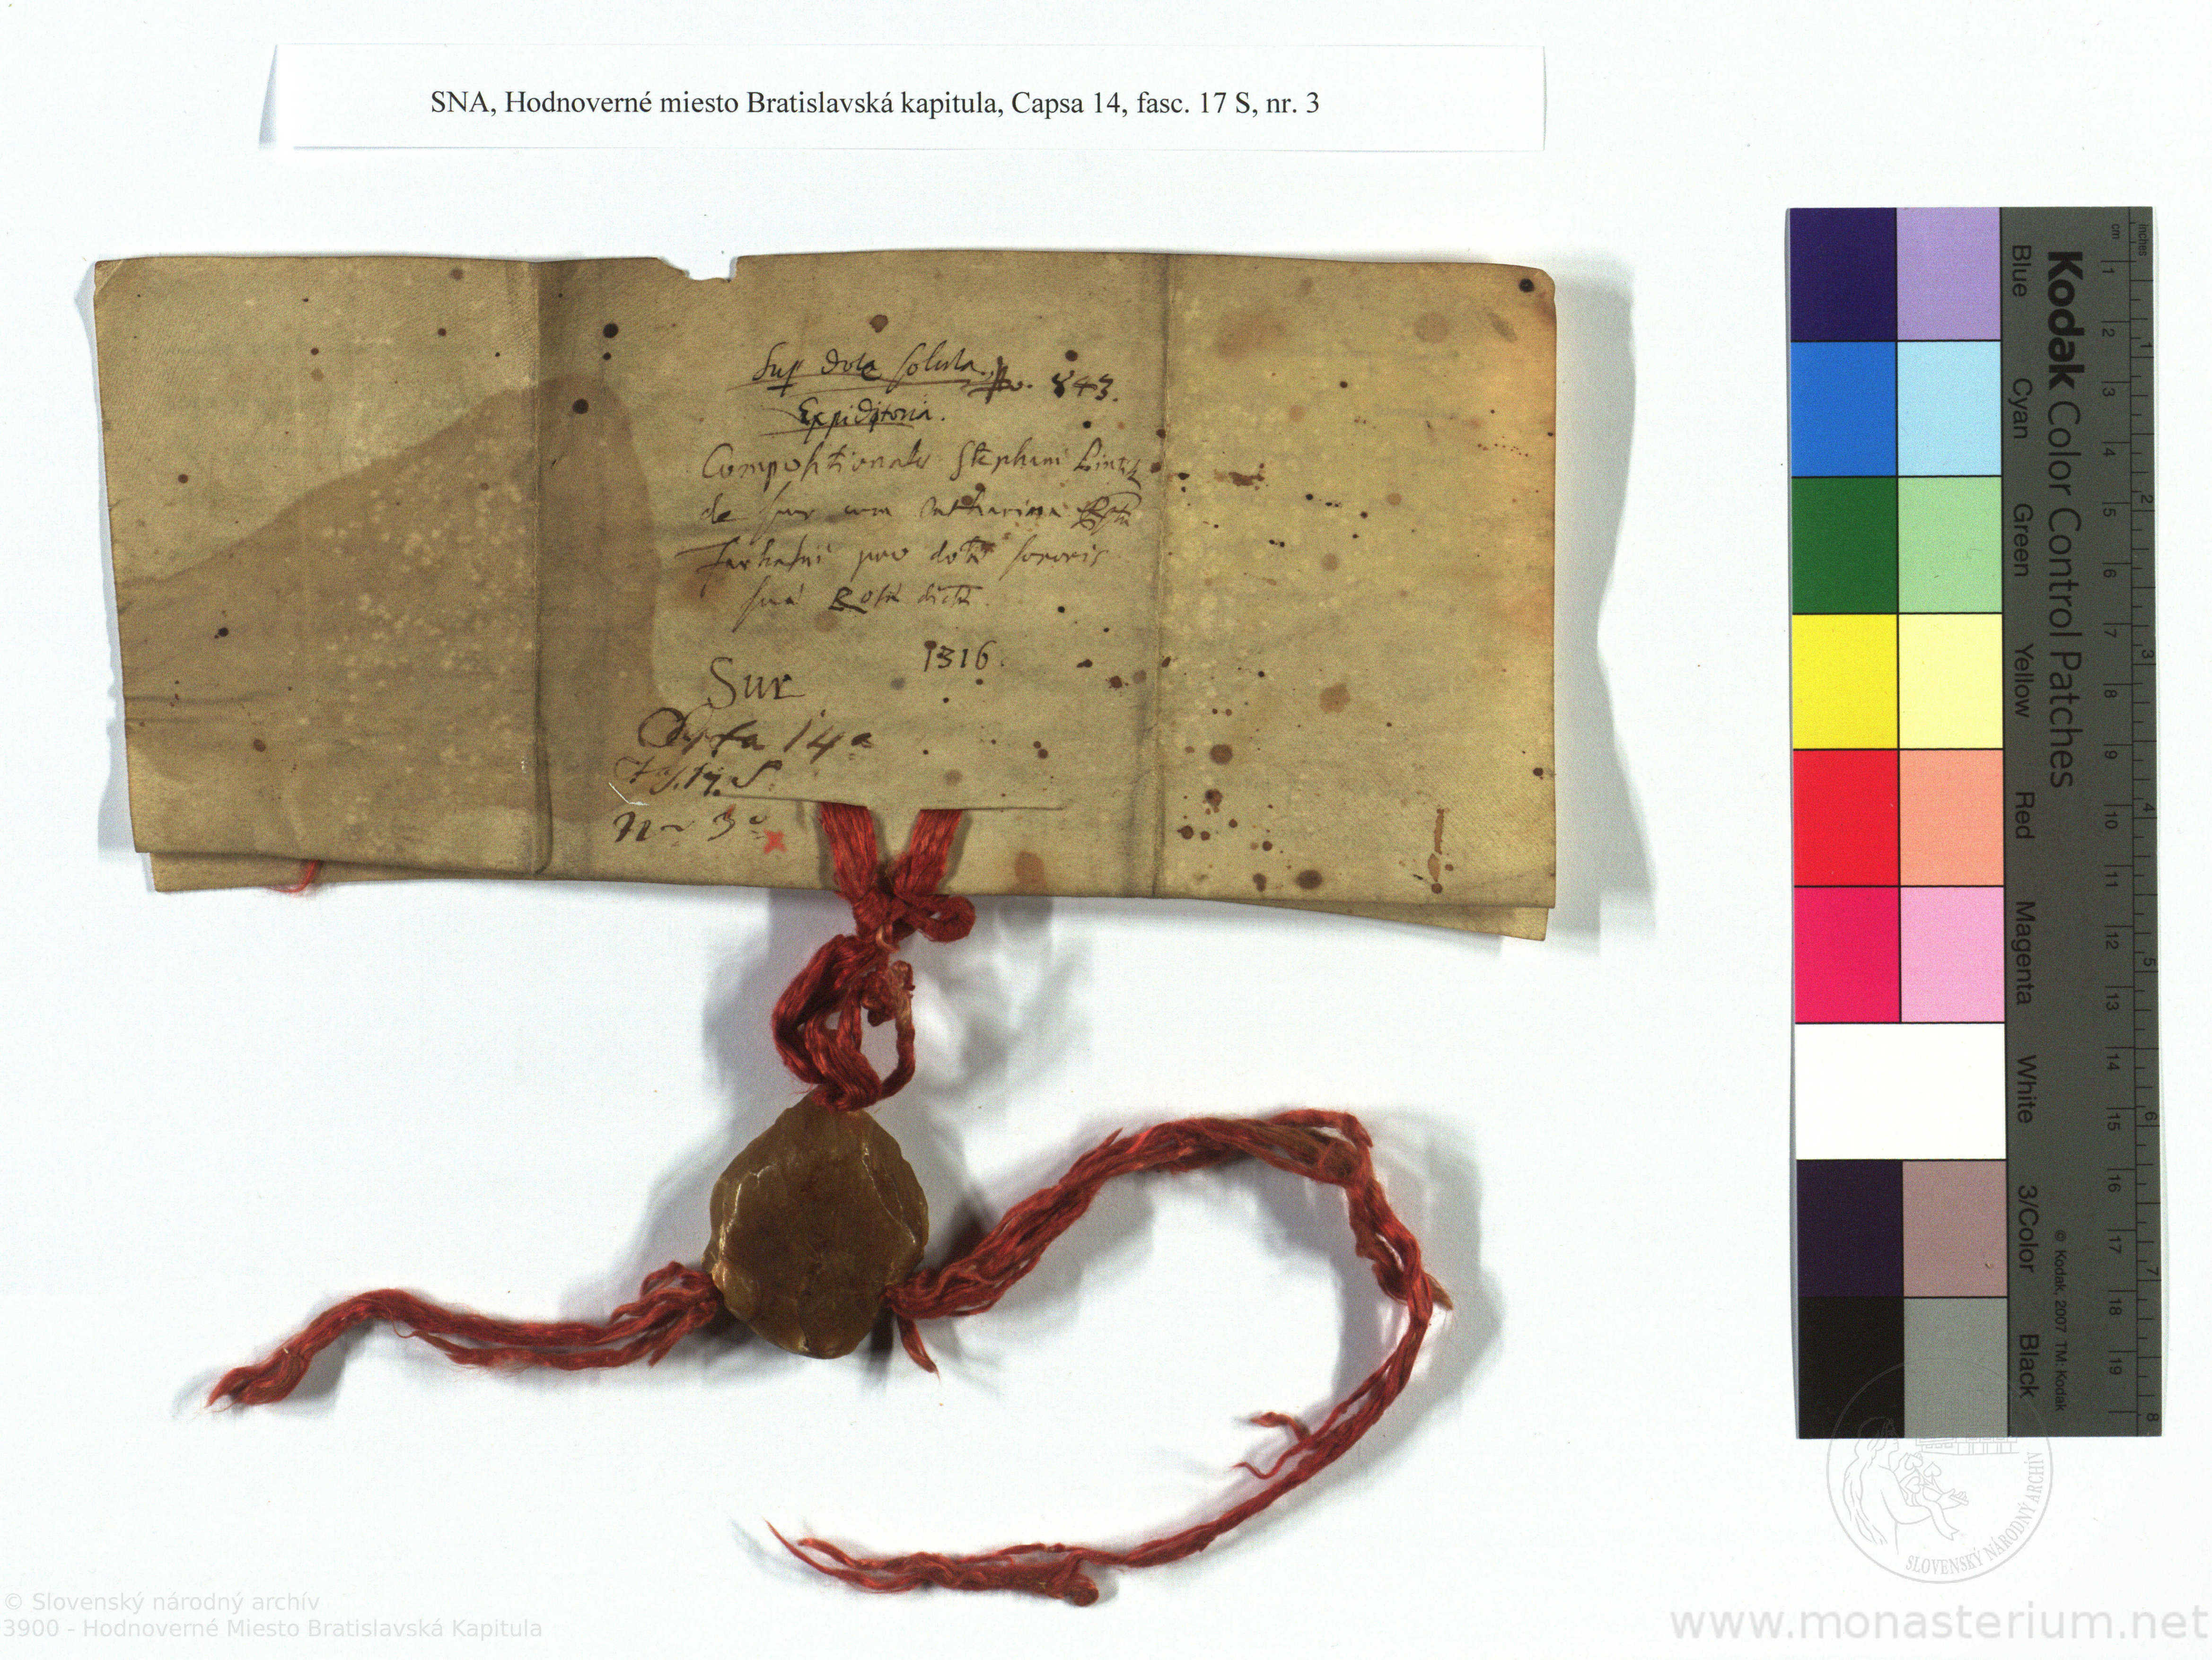 SNA, Hodnoverné miesto Bratislavská kapitula, Capsa 14, fasc. 17 S, nr. 3
Sup Dote soluta. 843.
Expeditoria.
Compositionales Stephani
de Sur cum Catharina
pro dote sororis
suae dicte
1316.
Sur
Capsa 14a
Fas. 17. S.
Nr 3o
Kodak Color Control Patches
Blue Cyan Green Yellow Red Magenta White 3/Color Black
© Kodak, 2007 TM: Kodak
inches 1 2 3 4 5 6 7 8
cm 1 2 3 4 5 6 7 8 9 10 11 12 13 14 15 16 17 18 19
SLOVENSKÝ NÁRODNÝ ARCHÍV
© Slovenský národný archív
3900 - Hodnoverné Miesto Bratislavská Kapitula
www.monasterium.net